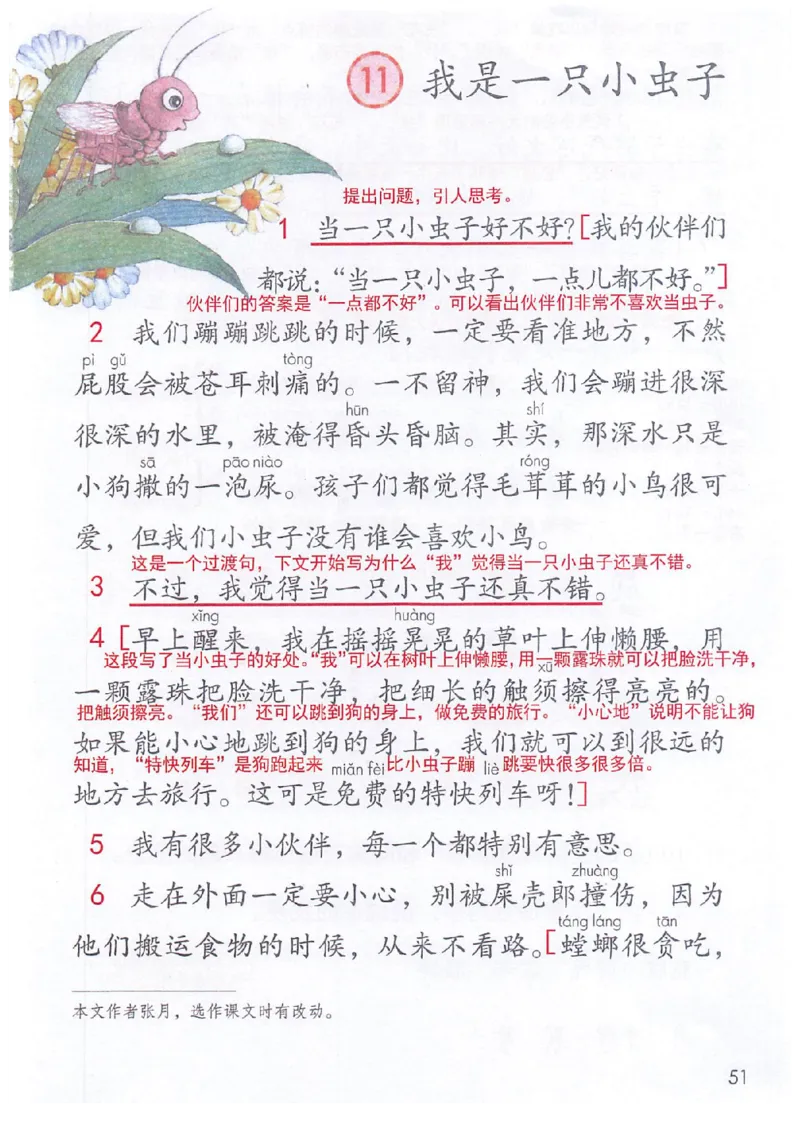 11 我是一只小虫子
提出问题，引人思考。
1 当一只小虫子好不好？[我的伙伴们
都说：“当一只小虫子，一点儿都不好。”]
伙伴们的答案是“一点都不好”。可以看出伙伴们非常不喜欢当虫子。
2 我们蹦蹦跳跳的时候，一定要看准地方，不然
pì gǔ tòng
屁股会被苍耳刺痛的。一不留神，我们会蹦进很深
hūn shí
很深的水里，被淹得昏头昏脑。其实，那深水只是
sā pāo niào róng
小狗撒的一泡尿。孩子们都觉得毛茸茸的小鸟很可
爱，但我们小虫子没有谁会喜欢小鸟。
这是一个过渡句，下文开始写为什么“我”觉得当一只小虫子还真不错。
3 不过，我觉得当一只小虫子还真不错。
xǐng huàng
4 [早上醒来，我在摇摇晃晃的草叶上伸懒腰，用
这段写了当小虫子的好处。“我”可以在树叶上伸懒腰，用一颗露珠就可以把脸洗干净，
xū
一颗露珠把脸洗干净，把细长的触须擦得亮亮的。
把触须擦亮。“我们”还可以跳到狗的身上，做免费的旅行。“小心地”说明不能让狗
如果能小心地跳到狗的身上，我们就可以到很远的
知道，“特快列车”是狗跑起来 miǎn fèi 比小虫子蹦 liè 跳要快很多很多倍。
地方去旅行。这可是免费的特快列车呀！]
5 我有很多小伙伴，每一个都特别有意思。
shǐ zhuàng
6 走在外面一定要小心，别被屎壳郎撞伤，因为
táng láng tān
他们搬运食物的时候，从来不看路。[螳螂很贪吃，
本文作者张月，选作课文时有改动。
51